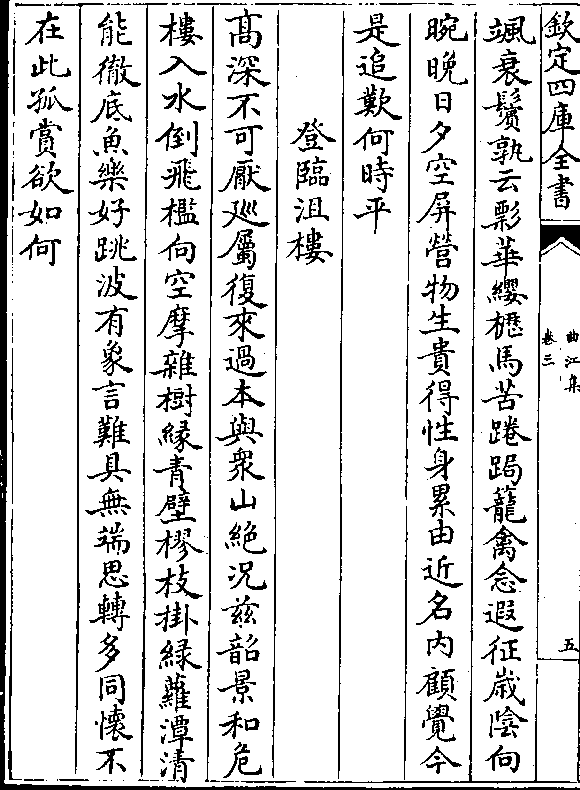 欽定四庫全書
曲江集
卷三
五
颯衰鬢孰云彯華纓櫪馬苦踡跼籠禽念遐征歲陰向
晼晚日夕空屏營物生貴得性身累由近名内顧覺今
是追歎何時平
登臨沮樓
髙深不可厭廵屬復來過本與衆山絶况兹韶景和危
樓入水倒飛檻向空摩雜樹緣青壁樛枝掛緑蘿潭清
能徹底魚樂好跳波有象言難具無端思轉多同懷不
在此孤賞欲如何